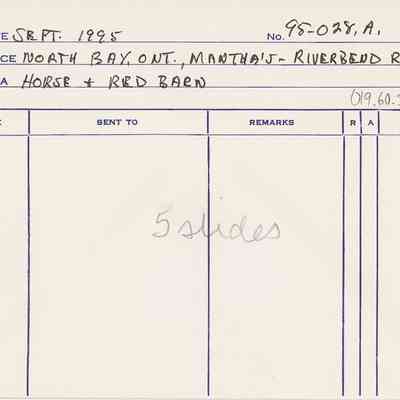 E SEPT. 1995 No. 95-028, A.
CE NORTH BAY, ONT., MANTHA'S - RIVERBEND R
A HORSE + RED BARN
019.60.
SENT TO REMARKS R A
5 slides